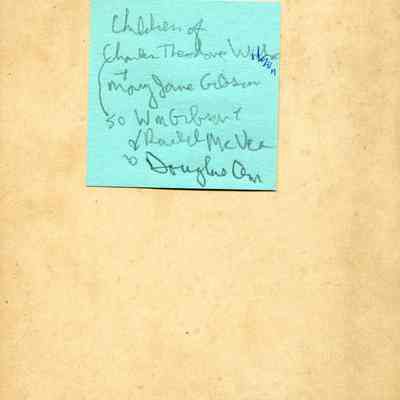 Children of
Charles Theodore Wilson
+
Mary Jane Gibson
so Wm Gibson +
& Rachel McVea
Douglas